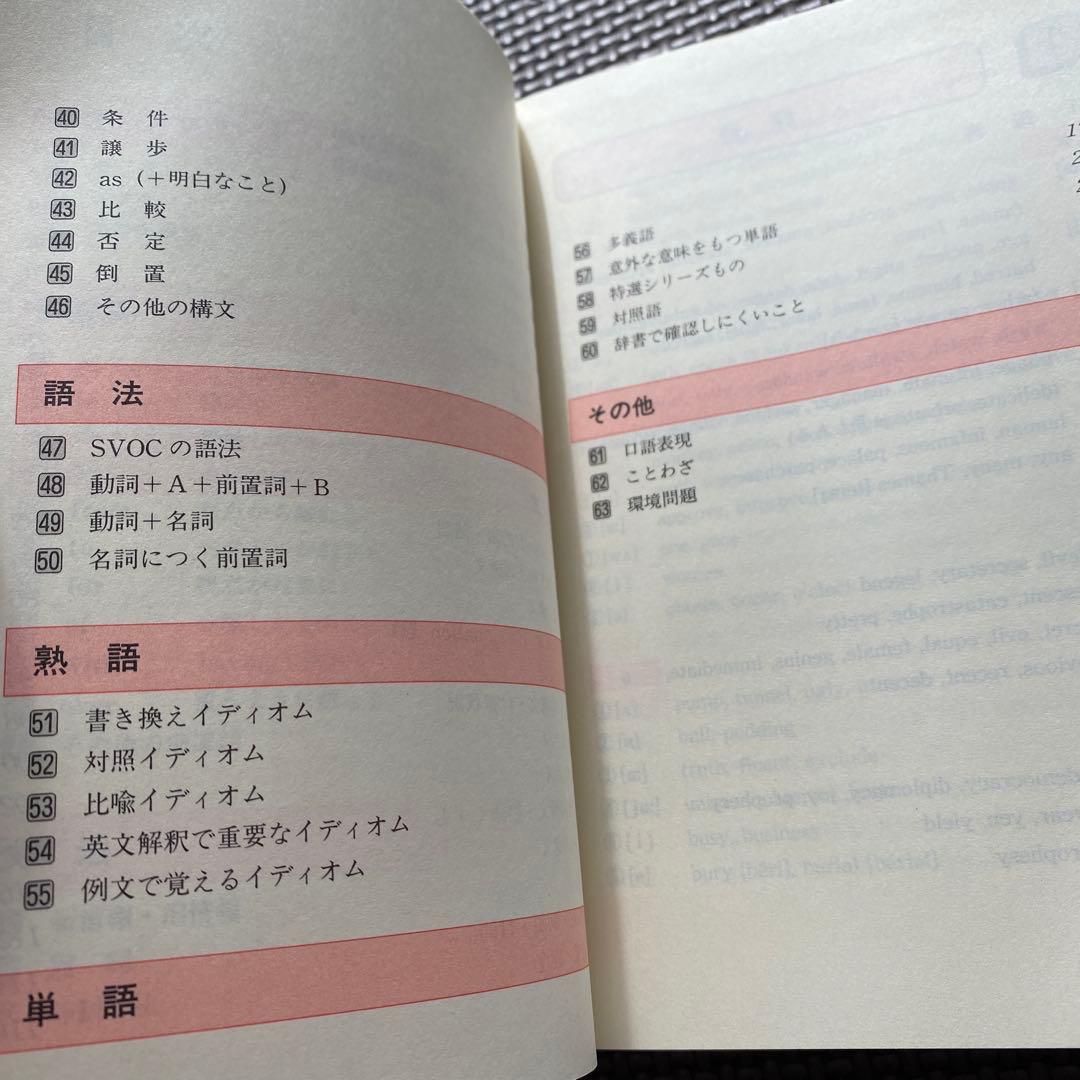 40 条件
41 譲歩
42 as (＋明白なこと)
43 比較
44 否定
45 倒置
46 その他の構文
語法
47 SVOCの語法
48 動詞＋A＋前置詞＋B
49 動詞＋名詞
50 名詞につく前置詞
熟語
51 書き換えイディオム
52 対照イディオム
53 比喩イディオム
54 英文解釈で重要なイディオム
55 例文で覚えるイディオム
単語
56 多義語
57 意外な意味をもつ単語
58 特選シリーズもの
59 対照語
60 辞書で確認しにくいこと
その他
61 口語表現
62 ことわざ
63 環境問題